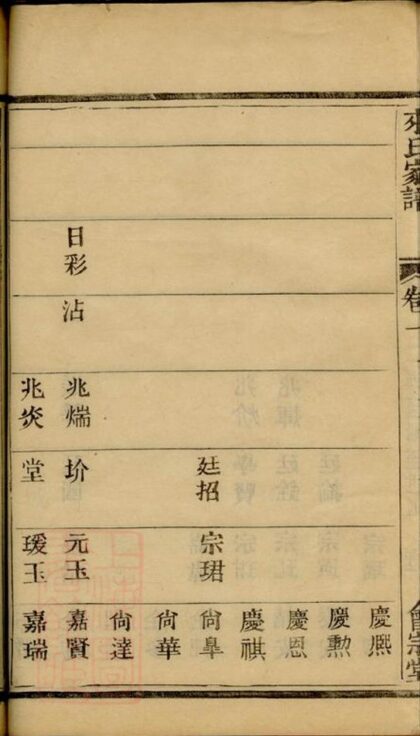 氏家譜
卷一
會宗堂
慶熈
慶勲
慶恩
慶祺
廷招
宗珺
尙皐
尙華
尙達
日彩
沾
兆煓
玠
元玉
嘉賢
兆炎
堂
瑗玉
嘉瑞